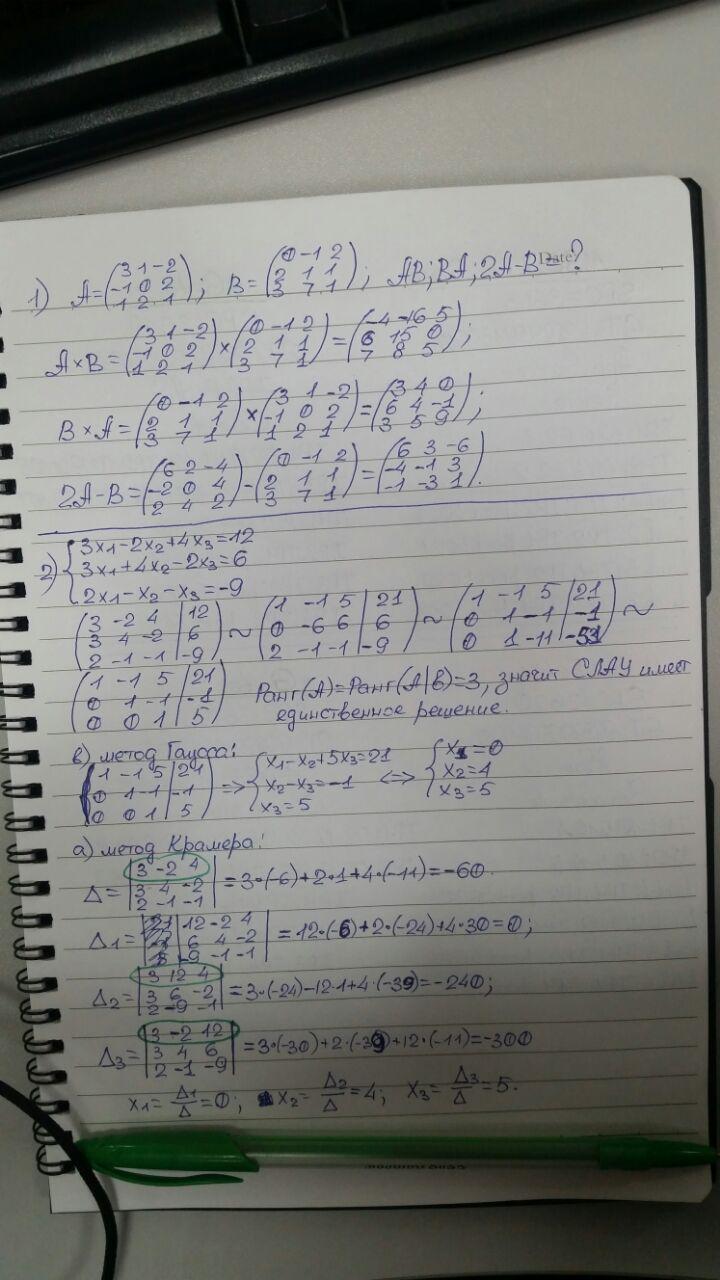 1) A=(3 1 -2; -1 0 2; 1 2 1); B=(0 -1 2; 2 1 1; 3 7 1); AB; BA; 2A-B=?
Date:
A×B=(3 1 -2; -1 0 2; 1 2 1)×(0 -1 2; 2 1 1; 3 7 1)=(-4 -16 5; 6 15 0; 7 8 5);
B×A=(0 -1 2; 2 1 1; 3 7 1)×(3 1 -2; -1 0 2; 1 2 1)=(3 4 0; 6 4 -1; 3 5 9);
2A-B=(6 2 -4; -2 0 4; 2 4 2)-(0 -1 2; 2 1 1; 3 7 1)=(6 3 -6; -4 -1 3; -1 -3 1).
2) {3x1-2x2+4x3=12
3x1+4x2-2x3=6
2x1-x2-x3=-9
(3 -2 4 | 12; 3 4 -2 | 6; 2 -1 -1 | -9) ~ (1 -1 5 | 21; 0 -6 6 | 6; 2 -1 -1 | -9) ~ (1 -1 5 | 21; 0 1 -1 | -1; 0 1 -11 | -51) ~
(1 -1 5 | 21; 0 1 -1 | -1; 0 0 1 | 5) Ранг(A)=Ранг(A|B)=3, значит СЛАУ имеет
единственное решение.
в) метод Гаусса:
(1 -1 5 | 21; 0 1 -1 | -1; 0 0 1 | 5) => {x1-x2+5x3=21; x2-x3=-1; x3=5 <=> {x1=0; x2=4; x3=5
а) метод Крамера:
Δ=|3 -2 4; 3 4 -2; 2 -1 -1|=3·(-6)+2·1+4·(-11)=-60.
Δ1=|12 -2 4; 6 4 -2; -9 -1 -1|=12·(-6)+2·(-24)+4·30=0;
Δ2=|3 12 4; 3 6 -2; 2 -9 -1|=3·(-24)-12·1+4·(-39)=-240;
Δ3=|3 -2 12; 3 4 6; 2 -1 -9|=3·(-30)+2·(-39)+12·(-11)=-300
x1=Δ1/Δ=0; x2=Δ2/Δ=4; x3=Δ3/Δ=5.